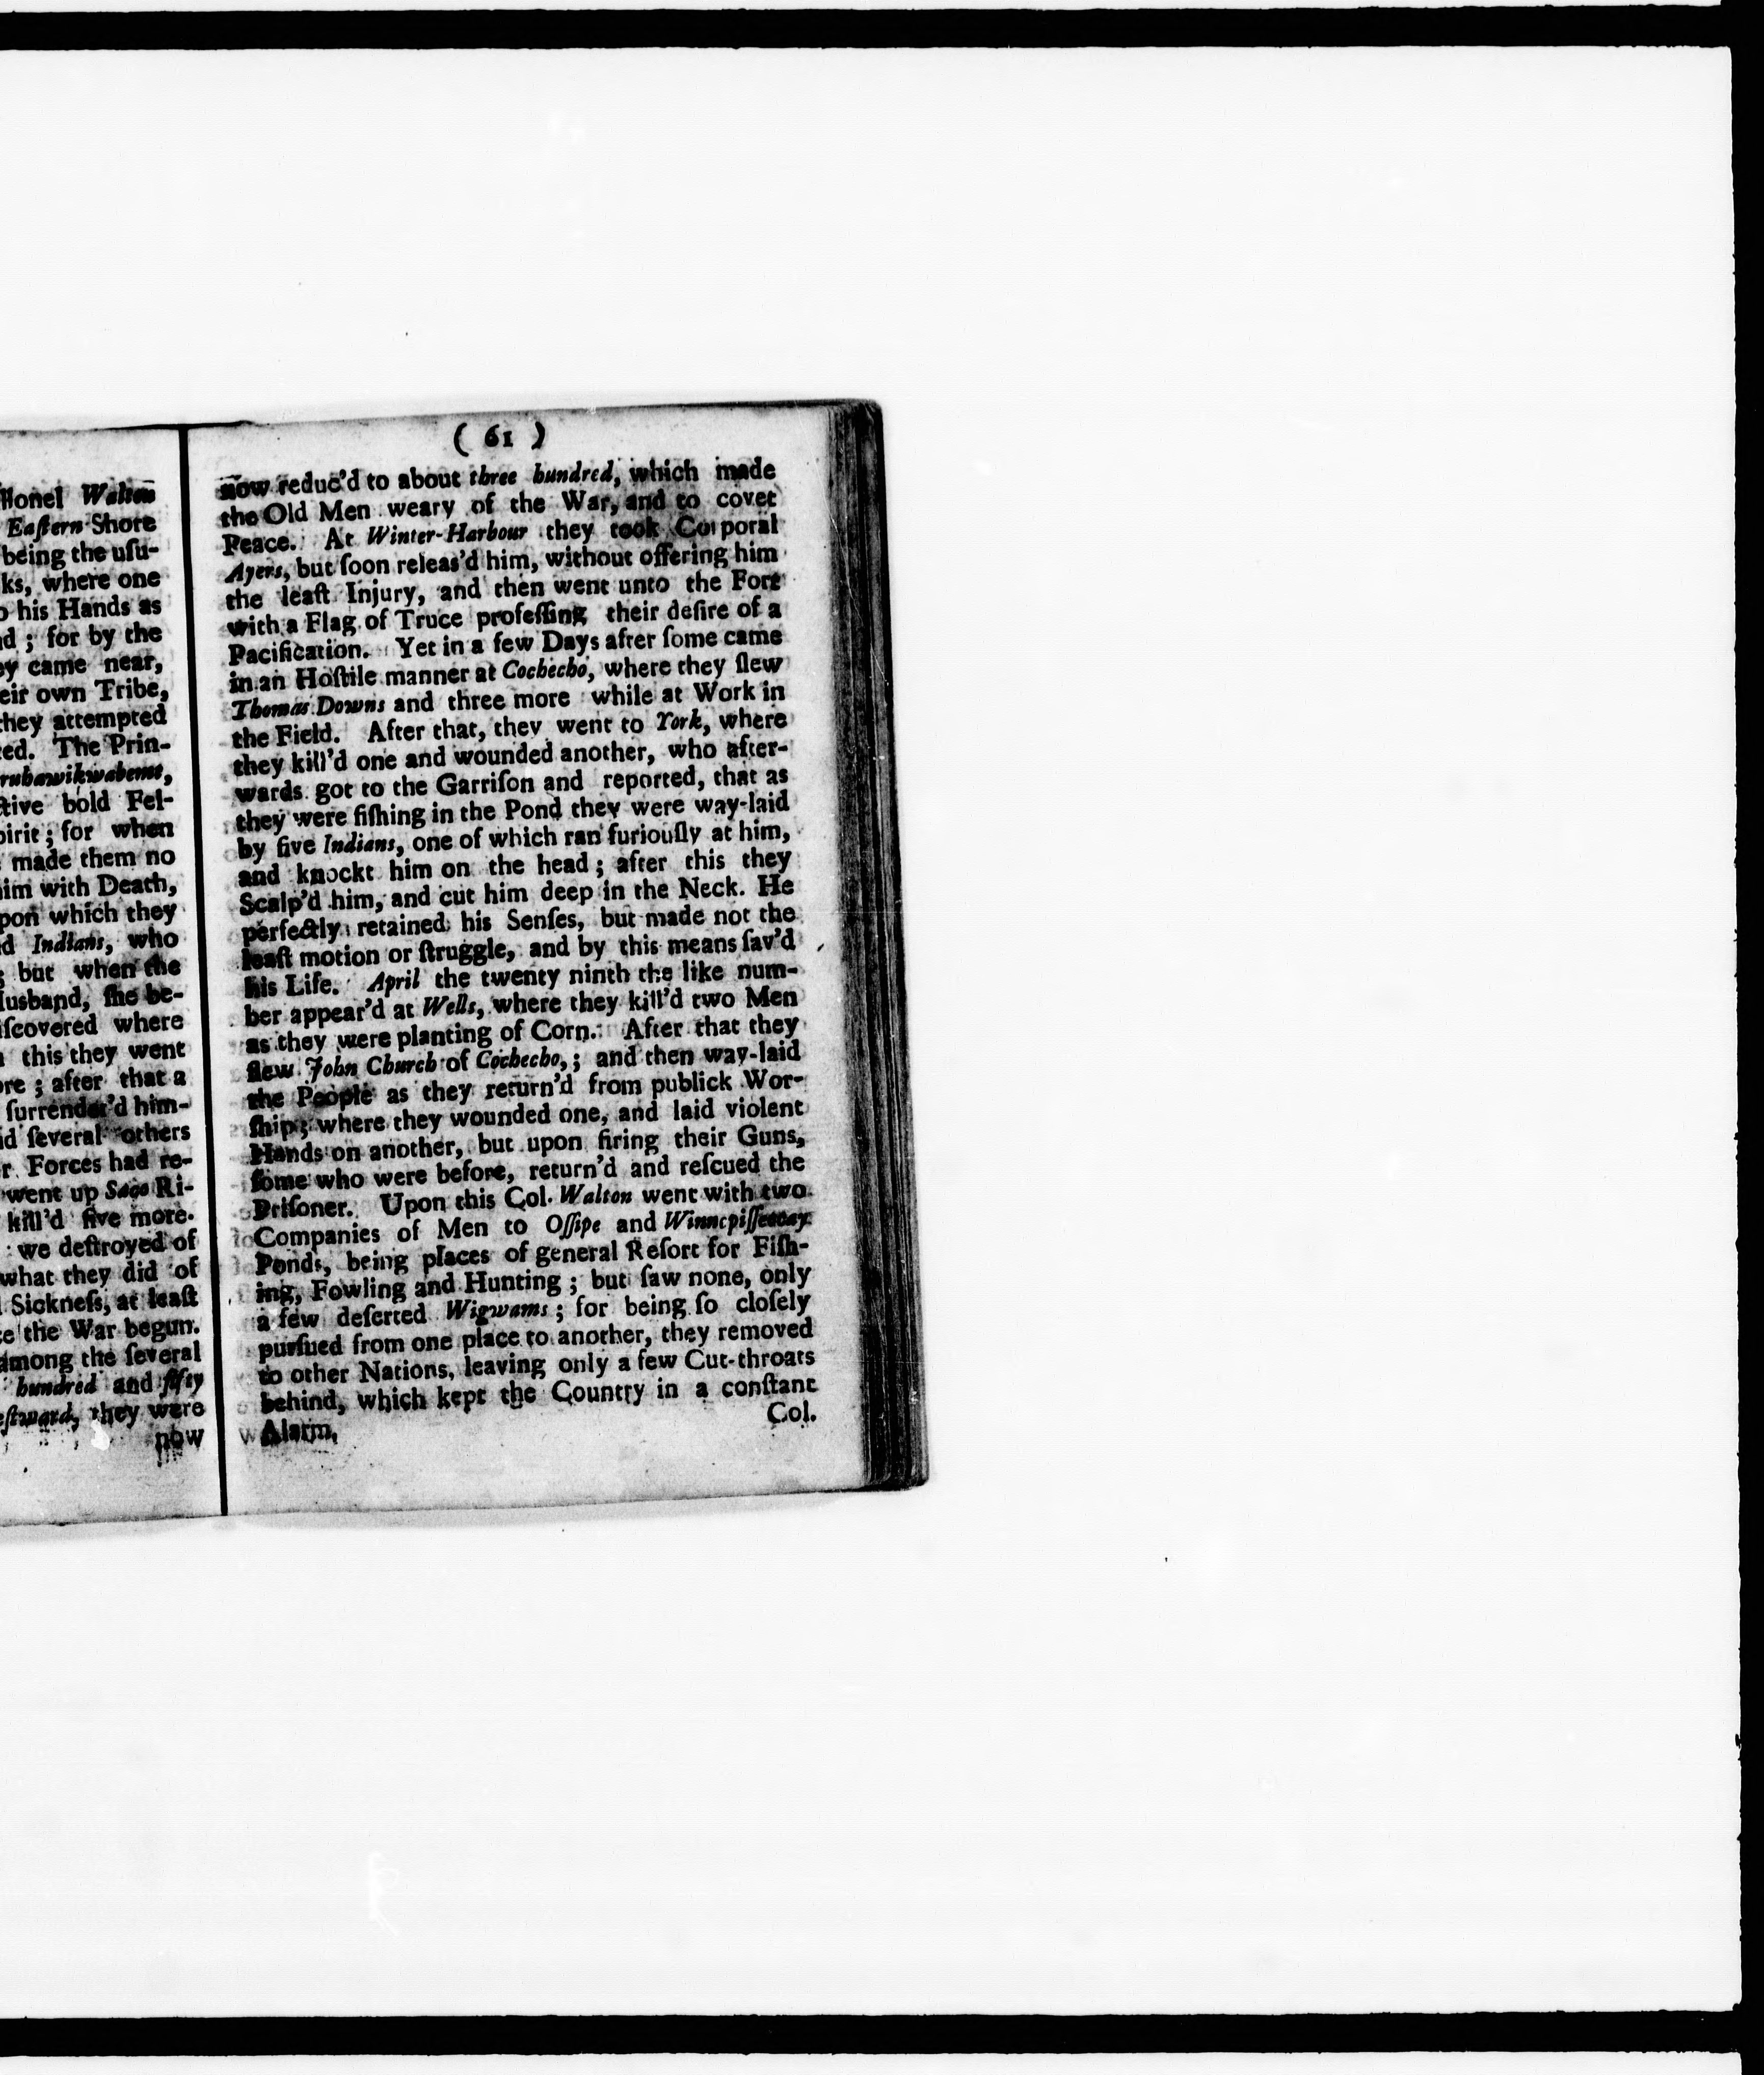 llonel Walton
Eaſtern Shore
being the uſu-
ks, where one
o his Hands as
nd ; for by the
ey came near,
eir own Tribe,
they attempted
ted. The Prin-
rubawikwabemt,
ctive bold Fel-
pirit ; for when
made them no
him with Death,
pon which they
d Indians, who
; but when the
Husband, ſhe be-
iſcovered where
this they went
ore ; after that a
ſurrender'd him-
id ſeveral others
r Forces had re-
went up Saco Ri-
kill'd five more.
we deſtroyed of
what they did of
Sickneſs, at leaſt
ce the War begun.
among the ſeveral
hundred and fifty
eſtward, they were
now
( 61 )
now reduc'd to about three hundred, which made
the Old Men weary of the War, and to covet
Peace. At Winter-Harbour they took Corporal
Ayers, but ſoon releas'd him, without offering him
the leaſt Injury, and then went unto the Fort
with a Flag of Truce profeſſing their deſire of a
Pacification. Yet in a few Days after ſome came
in an Hoſtile manner at Cochecho, where they ſlew
Thomas Downs and three more while at Work in
the Field. After that, they went to York, where
they kill'd one and wounded another, who after-
wards got to the Garriſon and reported, that as
they were fiſhing in the Pond they were way-laid
by five Indians, one of which ran furiouſly at him,
and knockt him on the head ; after this they
Scalp'd him, and cut him deep in the Neck. He
perfectly retained his Senſes, but made not the
leaſt motion or ſtruggle, and by this means ſav'd
his Life. April the twenty ninth the like num-
ber appear'd at Wells, where they kill'd two Men
as they were planting of Corn. After that they
ſlew John Church of Cochecho, ; and then way-laid
the People as they return'd from publick Wor-
ſhip ; where they wounded one, and laid violent
Hands on another, but upon firing their Guns,
ſome who were before, return'd and reſcued the
Priſoner. Upon this Col. Walton went with two
Companies of Men to Oſſipe and Winnepiſſeocay
Ponds, being places of general Reſort for Fiſh-
ing, Fowling and Hunting ; but ſaw none, only
a few deſerted Wigwams ; for being ſo cloſely
purſued from one place to another, they removed
to other Nations, leaving only a few Cut-throats
behind, which kept the Country in a conſtant
Alarm.
Col.